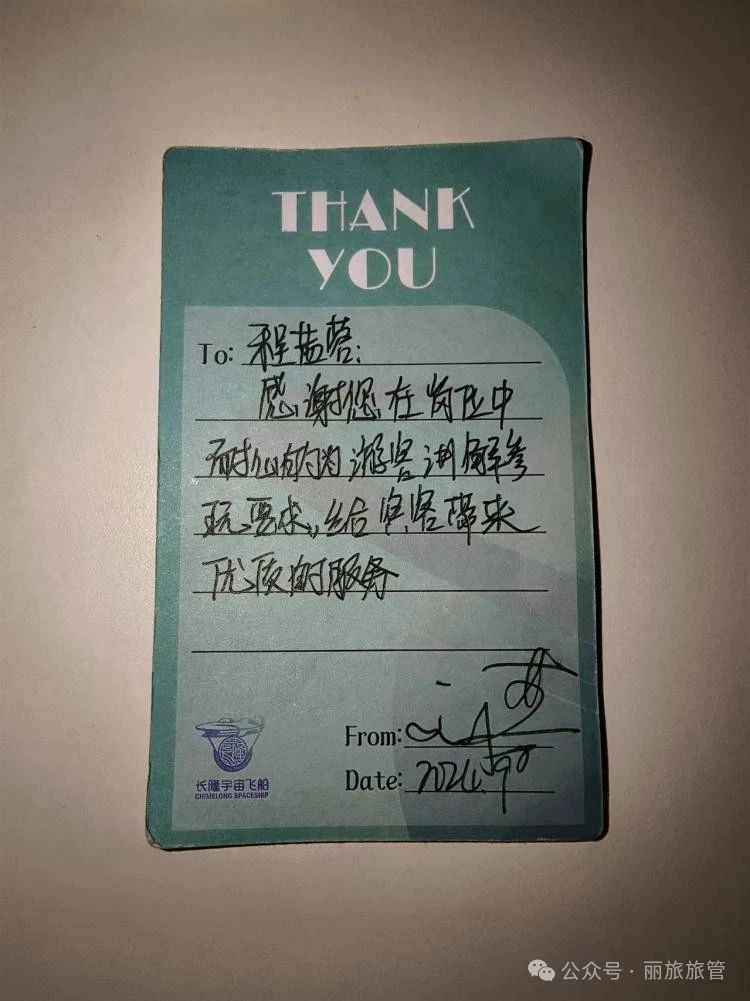 THANK
YOU
To: 程盐蓉:
感谢您在岗位中
耐心的为游客讲解参
玩要求,给宾客带来
优质的服务
From:
Date:
长隆宇宙飞船
CHIMELONG SPACESHIP
公众号·丽旅旅管